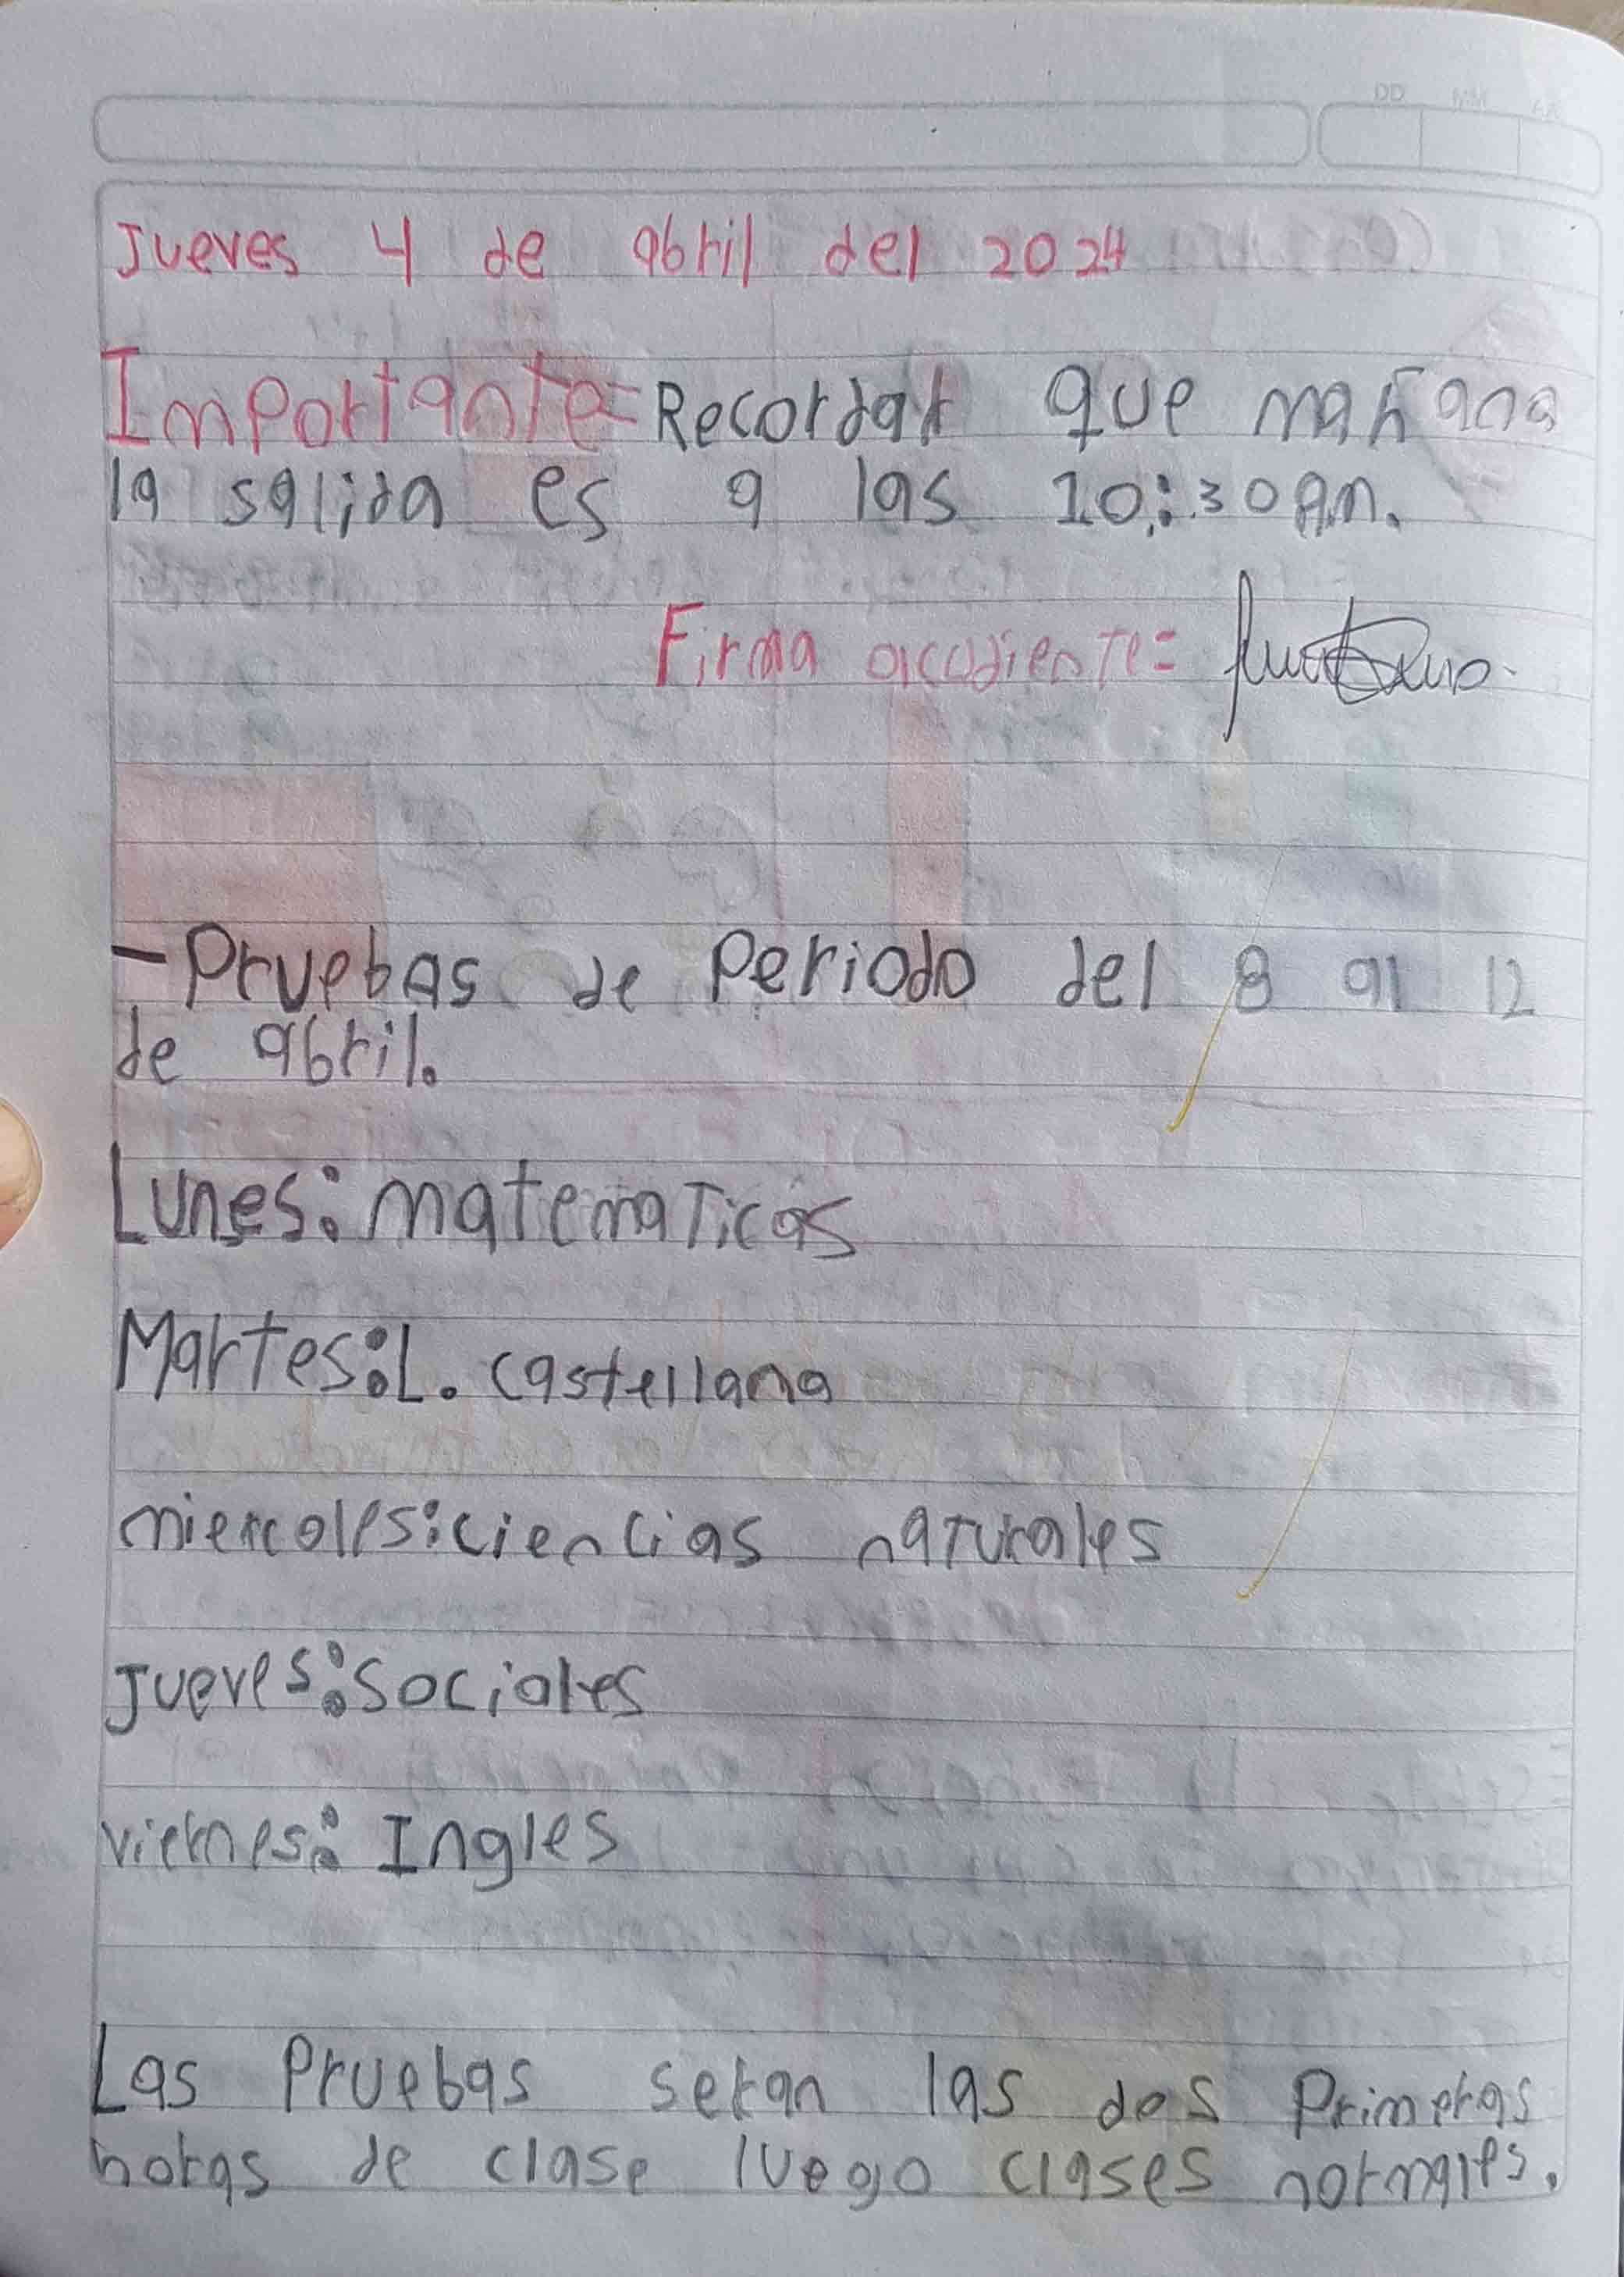 DD MM AA
Jueves 4 de abril del 2024
Importante= Recordar que mañana
la salida es a las 10:30 am.
Firma acudiente=
- Pruebas de Periodo del 8 al 12
de abril.
Lunes: matematicas
Martes: L. castellana
miercoles: ciencias naturales
Jueves: Sociales
viernes: Ingles
Las Pruebas seran las dos Primeras
horas de clase luego clases normales.